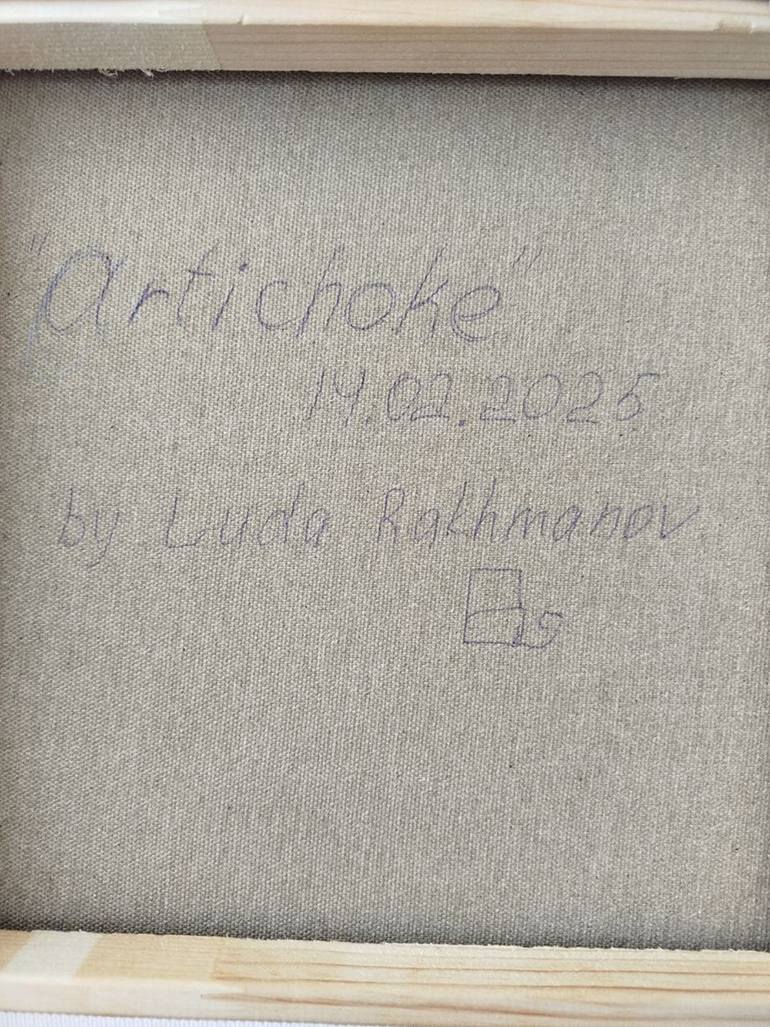 "Artichoke"
14.02.2025
by Luda Rakhmanov